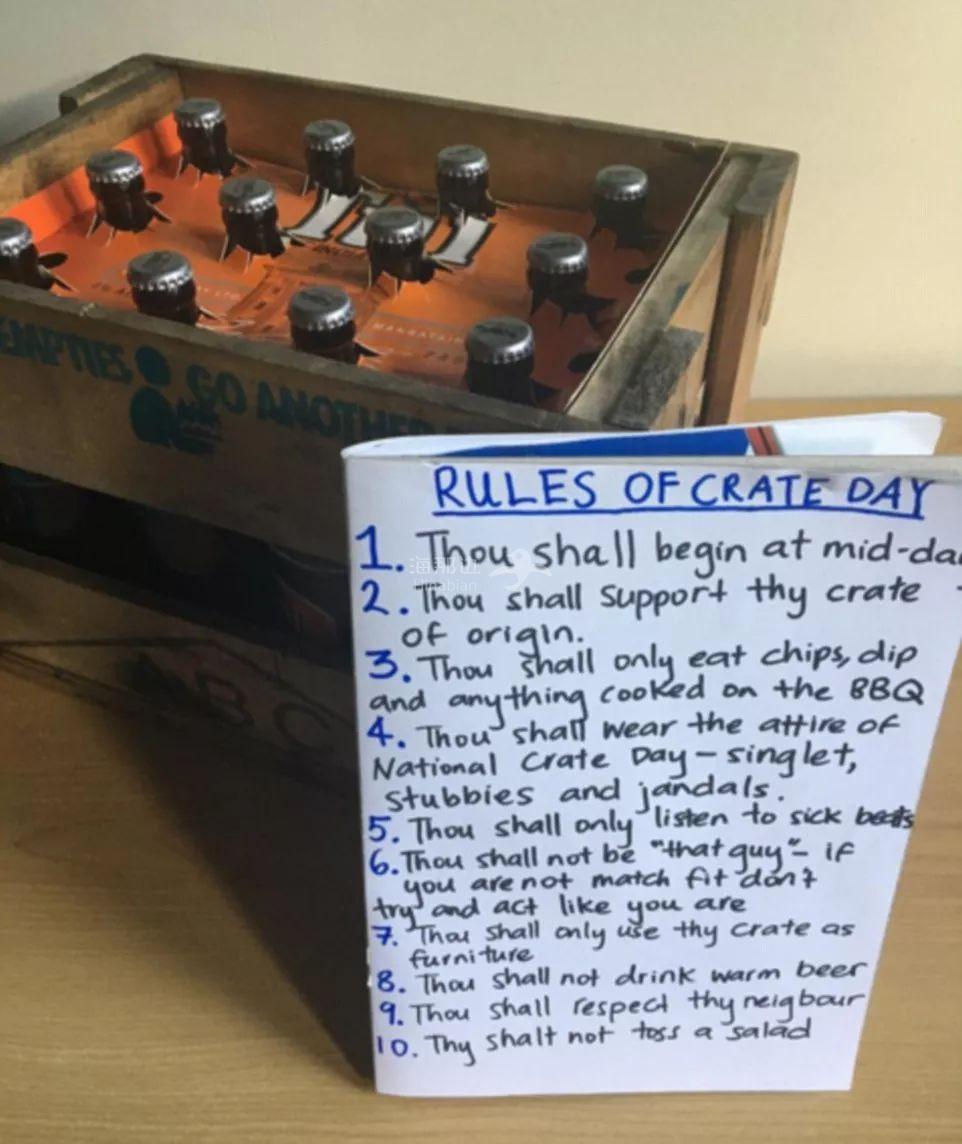 TUI
EMPTIES GO ANOTHER
ABC
RULES OF CRATE DAY
1. Thou shall begin at mid-da
2. Thou shall support thy crate
of origin.
3. Thou shall only eat chips, dip
and anything cooked on the BBQ
4. Thou shall wear the attire of
National Crate Day - singlet,
stubbies and jandals.
5. Thou shall only listen to sick beats
6. Thou shall not be "that guy" - if
you are not match fit don't
try and act like you are
7. Thou shall only use thy crate as
furniture
8. Thou shall not drink warm beer
9. Thou shall respect thy neigbour
10. Thy shalt not toss a salad
海那边
Hinabian